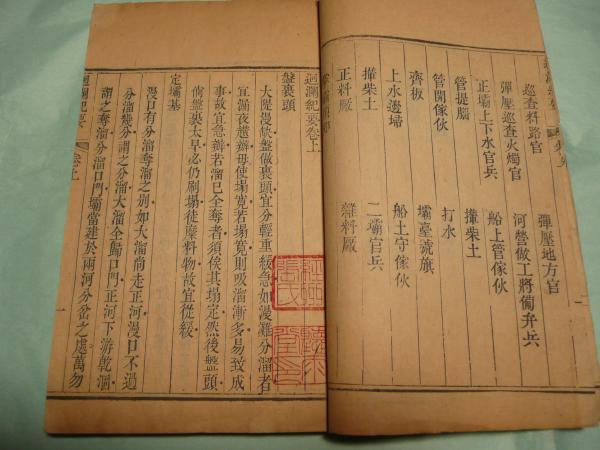 巡查料路官
彈壓地方官
彈壓巡查火燭官
河營做工將備弁兵
正壩上下水官兵
船上管傢伙
管提腦
攆柴土
管開傢伙
打水
齊板
壩臺號旗
上水邊埽
船上守傢伙
攆柴土
二壩官兵
正料厰
雜料厰
迴瀾紀要卷上
盤裹頭
大隄漫缺盤做裹頭宜分輕重緩急如漫灘分溜者
宜漏夜趕辦毋使塲寬若塲寬則吸溜漸多易致成
事故宜急辦若溜已全奪者須俟其塌定然後盤頭
倘盤裹太早必仍刷塌徒糜料物故宜從緩
定壩基
漫口有分溜奪溜之别如大溜尚走正河漫口不過
分溜幾分謂之分溜大溜全歸口門正河下游乾涸
謂之奪溜分溜口門壩當建於兩河分岔之處萬勿
迴瀾紀要
卷上